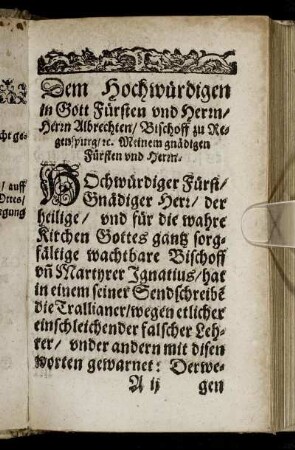 cht ge-
/ auff
Ottes/
rgung
Dem Hochwürdigen
in Gott Fürsten vnd Herrn/
Herrn Albrechten/ Bischoff zu Re-
genspurg/ ꝛc. Meinem gnädigen
Fürsten vnd Herrn.
HOchwürdiger Fürst/
Gnädiger Herꝛ/ der
heilige/ vnd für die wahre
Kirchen Gottes gantz sorg-
fältige wachtbare Bischoff
vñ Martyrer Ignatius/ hat
in einem seiner Sendschreibẽ
die Trallianer/ wegen etlicher
einschleichender falscher Leh-
rer/ vnder andern mit disen
worten gewarnet: Derwe-
A ij gen